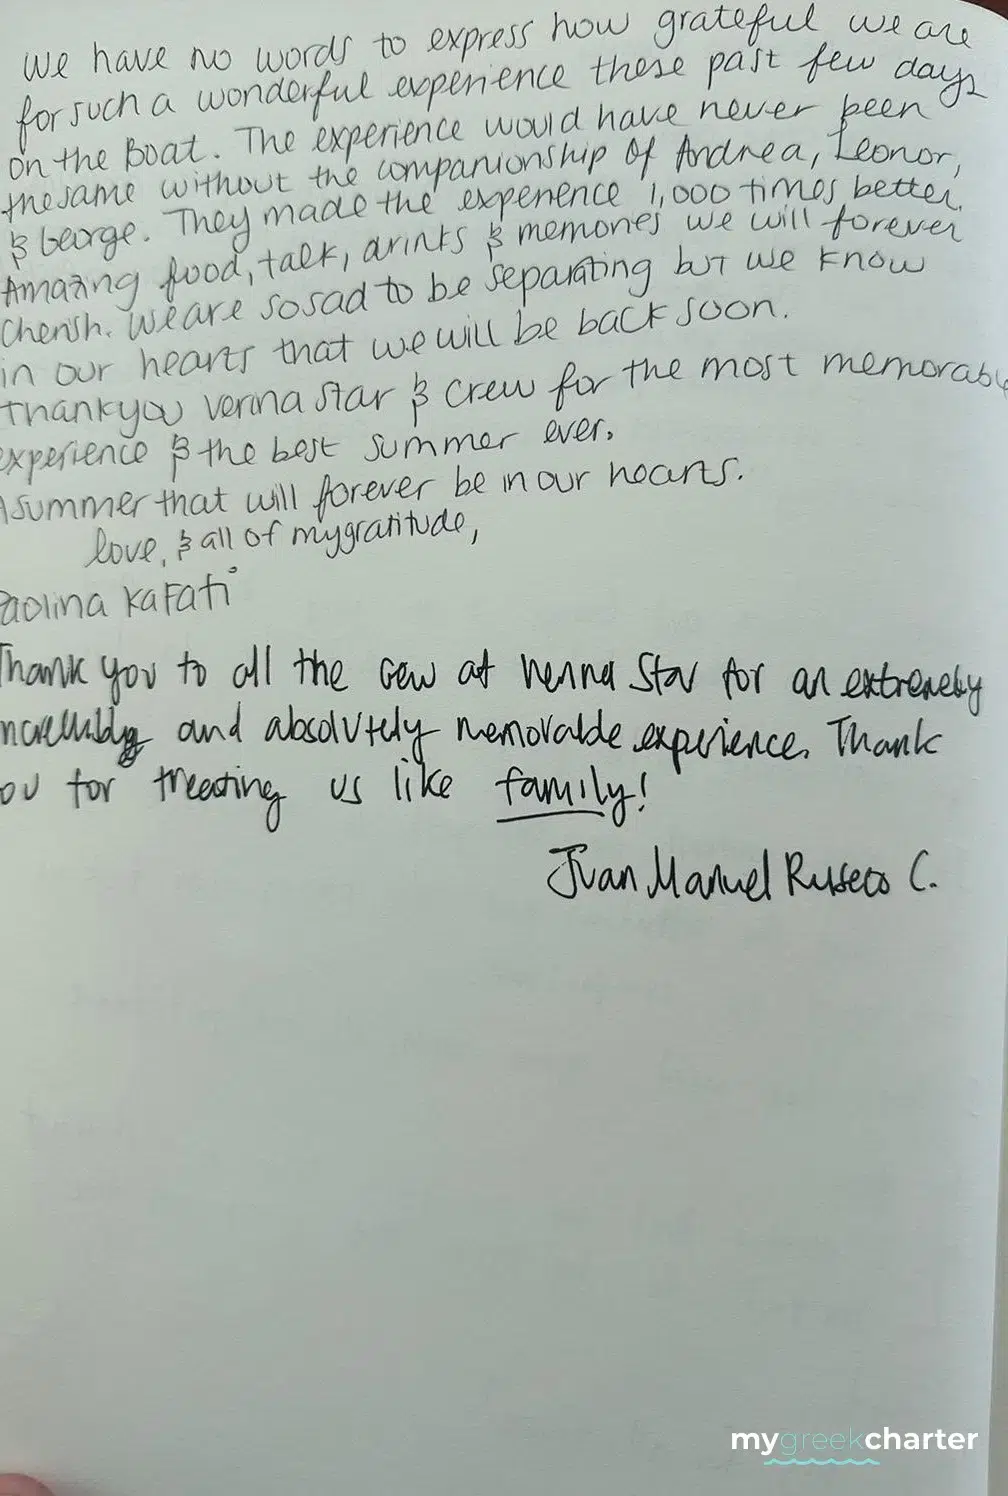 We have no words to express how grateful we are
for such a wonderful experience these past few days
on the Boat. The experience would have never been
the same without the companionship of Andrea, Leonor,
& George. They made the experience 1,000 times better.
Amazing food, talk, drinks & memories we will forever
Cherish. We are so sad to be separating but we know
in our hearts that we will be back soon.
Thankyou Verina Star & Crew for the most memorable
experience & the best summer ever.
A summer that will forever be in our hearts.
love, & all of my gratitude,
Paolina Kafati
Thank you to all the crew at Venna Star for an extremely
ncredibly and absolutely memorable experience. Thank
ou for treating us like family!
Juan Manuel C.
mygreekcharter